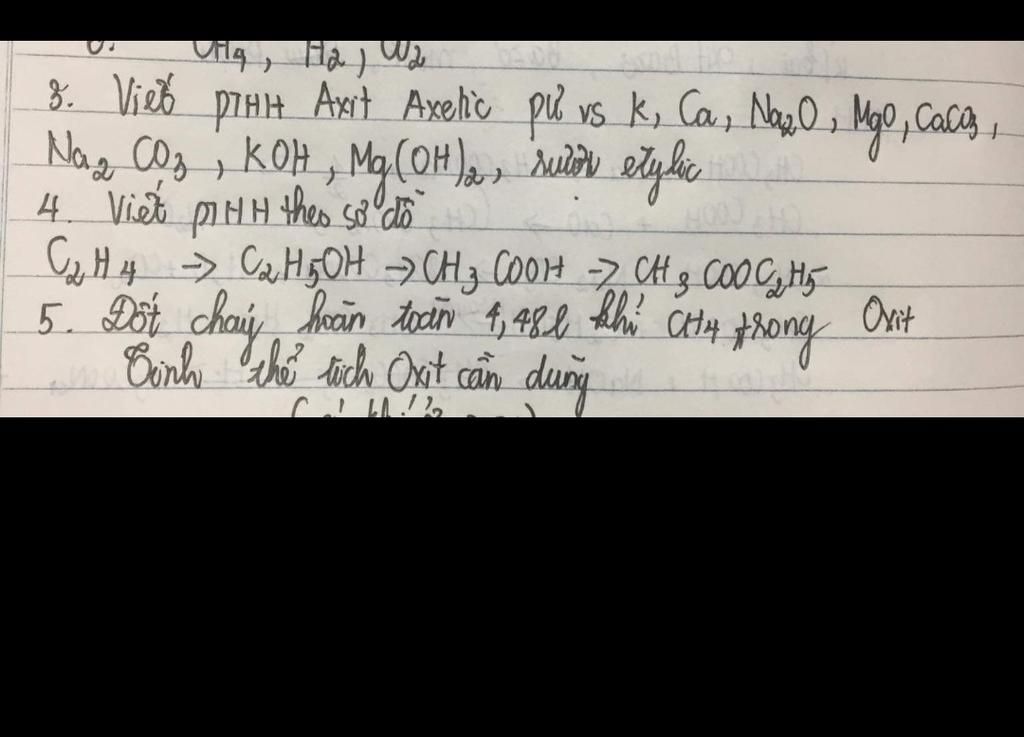 CH4, H2, CO2
3. Viết PTHH Axit Axetic pứ vs K, Ca, Na2O, MgO, CaCO3,
Na2 CO3, KOH, Mg(OH)2, rượu etylic
4. Viết PTHH theo sơ đồ
C2H4 -> C2H5OH -> CH3 COOH -> CH3 COOC2H5
5. Đốt cháy hoàn toàn 4,48l khí CH4 trong Oxit
Tính thể tích Oxit cần dùng